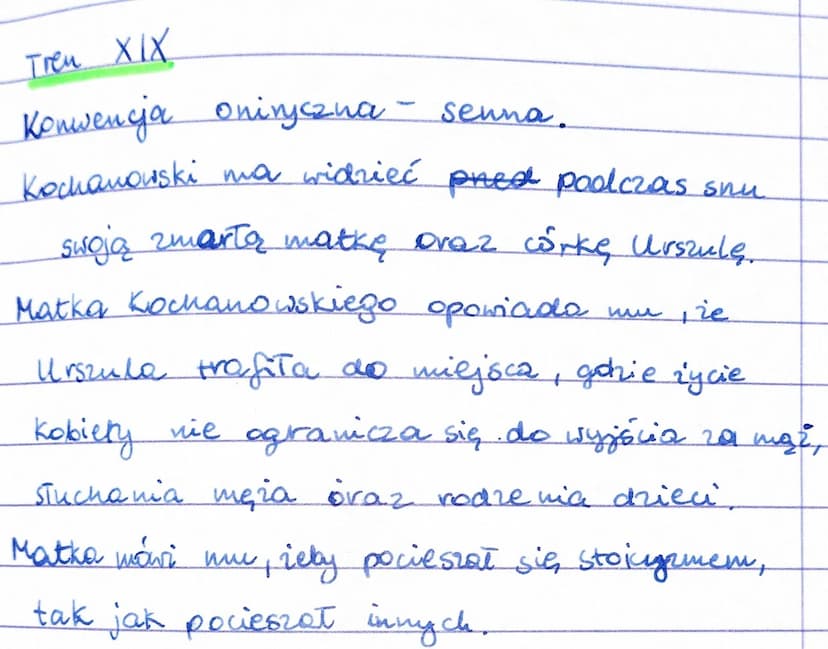 Tren XIX
Konwencja oniryczna - senna.
Kochanowski ma widzieć przed podczas snu
swoją zmarłą matkę oraz córkę Urszulę.
Matka Kochanowskiego opowiada mu, że
Urszula trafiła do miejsca, gdzie życie
kobiety nie ogranicza się do wyjścia za mąż,
słuchania męża oraz rodzenia dzieci.
Matka mówi mu, żeby pocieszał się stoicyzmem,
tak jak pocieszał innych.